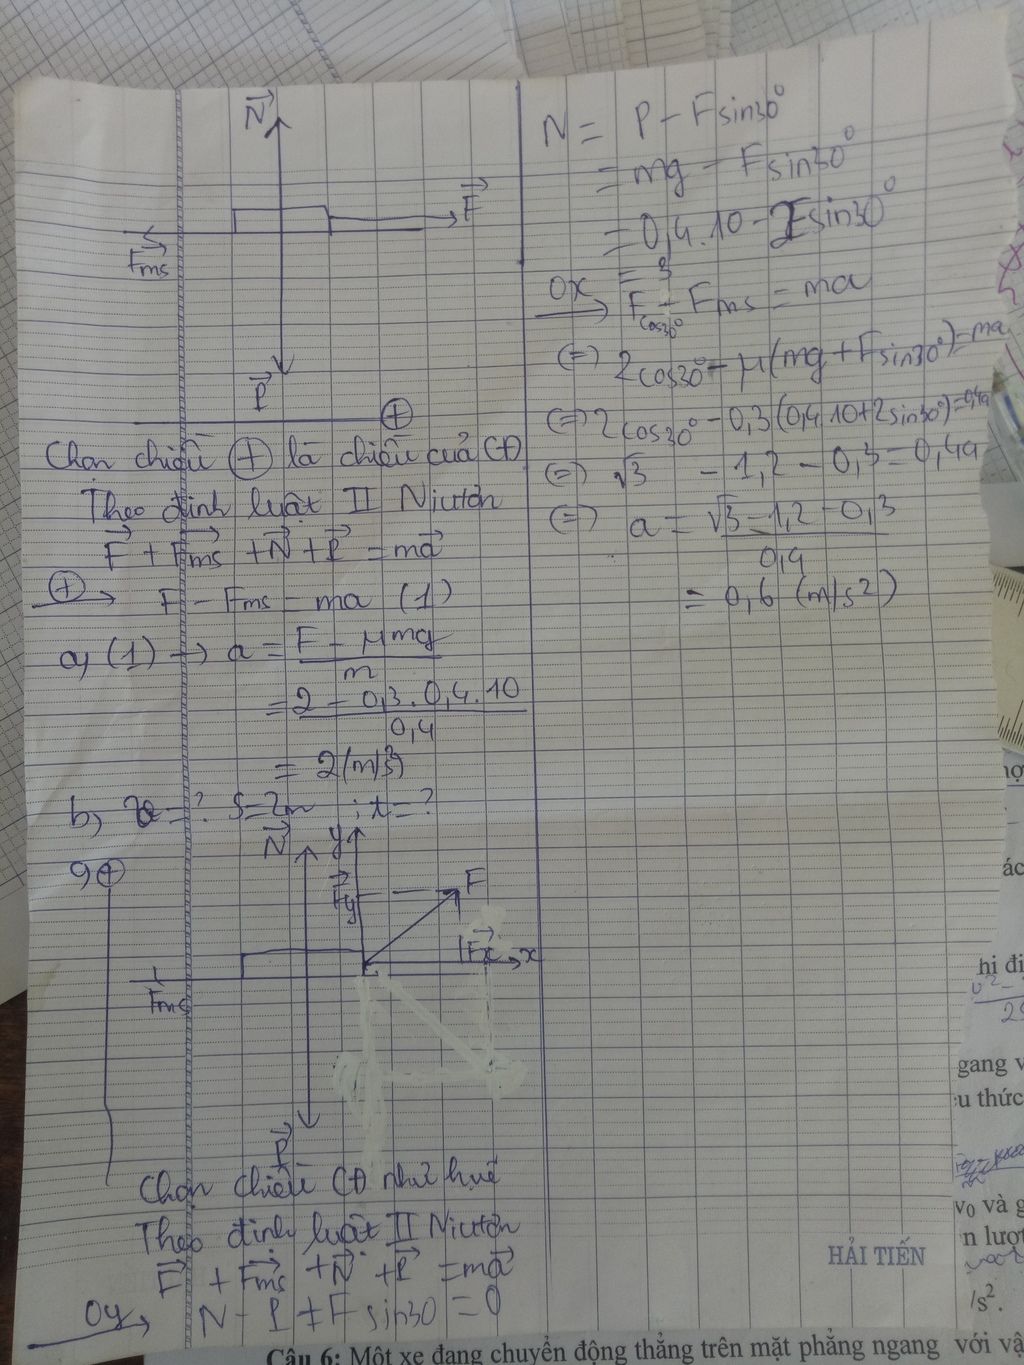 N⃗
F⃗
F⃗ms
P⃗
+
Chọn chiều (+) là chiều của CĐ
Theo định luật II Niutơn
F⃗ + F⃗ms + N⃗ + P⃗ = ma⃗
(+) → F - Fms = ma (1)
a, (1) → a = (F - μmg)/m
= (2 - 0,3.0,4.10)/0,4
= 2 (m/s²)
b, v=? S=2m ; t=?
N⃗
y
F⃗y
F
F⃗x
x
Fms
P⃗
c, +
Chọn chiều CĐ như hvẽ
Theo định luật II Niutơn
F⃗ + F⃗ms + N⃗ + P⃗ = ma⃗
Oy → N - P + F sin30 = 0
N = P - F sin30°
= mg - F sin30°
= 0,4.10 - 2 sin30°
= 3
Ox → F cos30° - Fms = ma
(=) 2cos30° - μ(mg + F sin30°) = ma
(=) 2cos30° - 0,3(0,4.10+2sin30°) = 0,4a
(=) √3 - 1,2 - 0,3 = 0,4a
(=) a = (√3 - 1,2 - 0,3)/0,4
= 0,6 (m/s²)
ác
hi đi
gang v
u thức
v₀ và g
n lượt
/s².
HẢI TIẾN
Câu 6: Một xe đang chuyển động thẳng trên mặt phẳng ngang với vậ